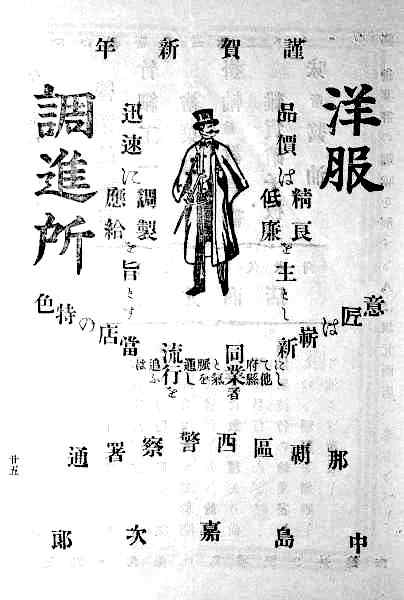 謹賀新年
洋服
品價は精良低廉を主とし
迅速に調製應給を旨とす
調進所
意匠は嶄新にして他府縣同業者と氣脈を通し流行を追ふは當店の特色
那覇區西警察署通
中島嘉次郎
廿五